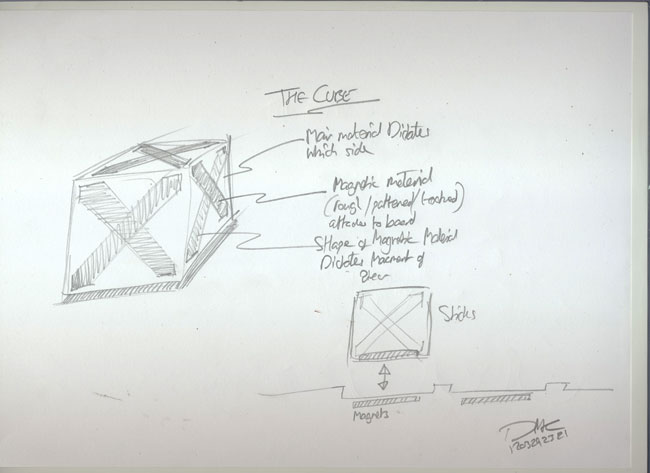 THE CUBE
Main material Dictates
which side
Magnetic material
(rough/patterned/)
attaches to board
SHape of Magnetic Material
Dictates Movement of
Sticks
Magnets